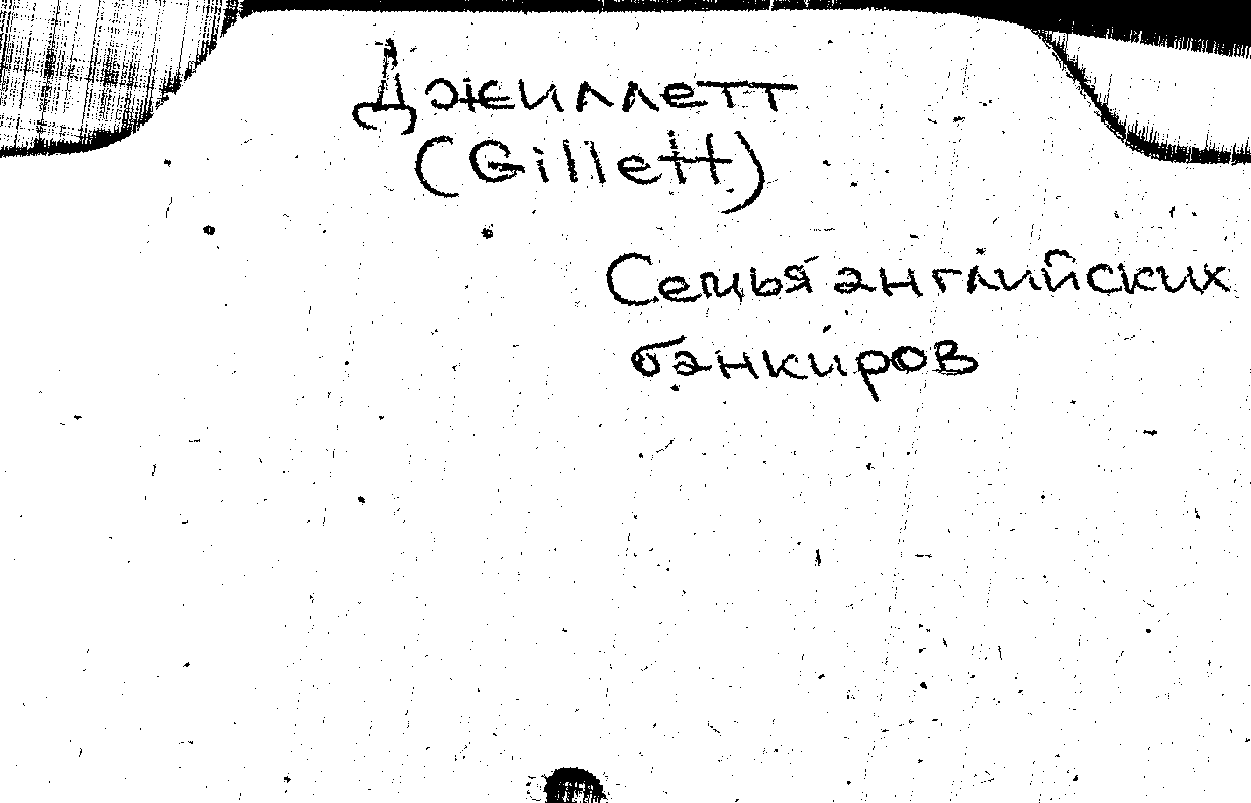 Джиллетт
(Gillett)
Семья английских
банкиров